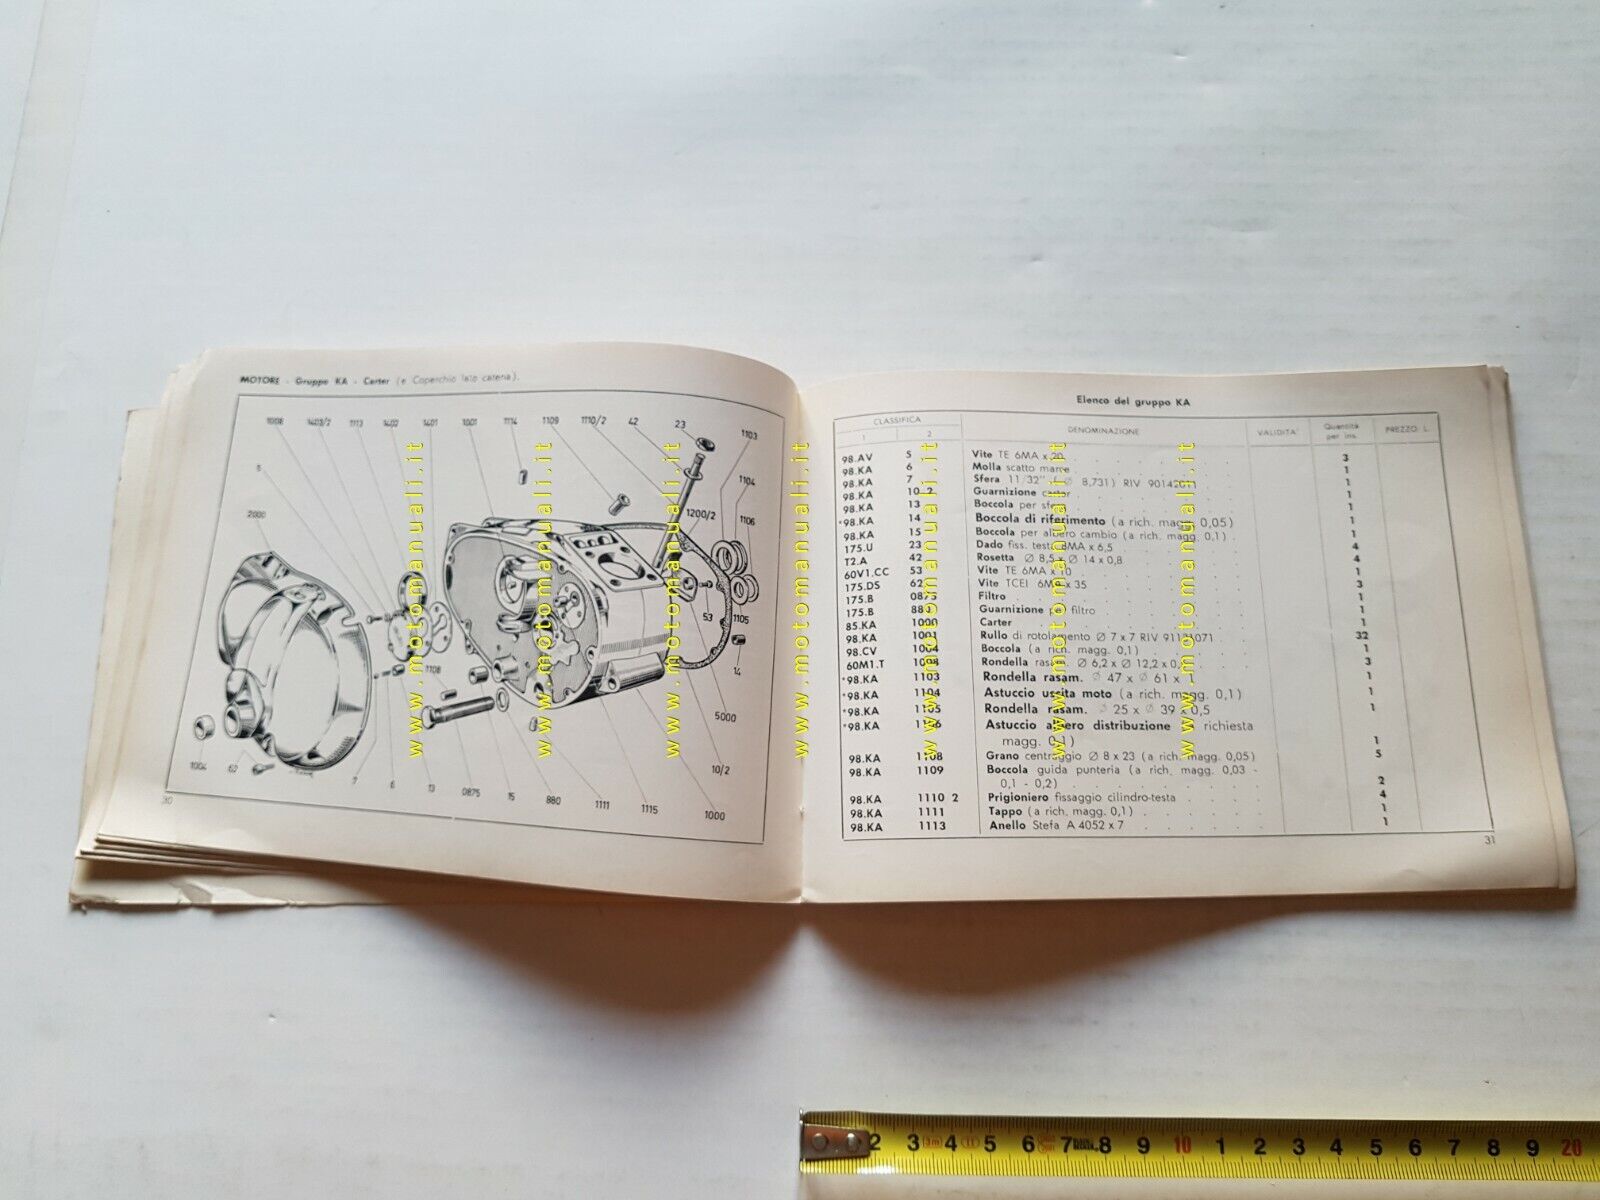 MOTORE - Gruppo KA - Carter (e Coperchio lato catena).
1008 1403/2 1113 1402 1401 1001 1114 1109 1110/2 42 23 1103
1104
1106
1200/2
2000
53 1105
14
1108
5000
10/2
1004 62 7 6 13 0875 15 880 1111 1115 1000
30
Elenco del gruppo KA
CLASSIFICA DENOMINAZIONE VALIDITA' Quantità per ins. PREZZO L.
1 2
98.AV 5 Vite TE 6MA x 20 3
98.KA 6 Molla scatto marce 1
98.KA 7 Sfera 11/32" ( Ø 8,731) RIV 9014201 1
98.KA 10 2 Guarnizione carter 1
98.KA 13 Boccola per 1
*98.KA 14 Boccola di riferimento (a rich. magg. 0,05) 1
98.KA 15 Boccola per albero cambio (a rich. magg. 0,1) 1
175.U 23 Dado fiss. testa 8MA x 6,5 4
T2.A 42 Rosetta Ø 8,5 x Ø 14 x 0,8 4
60V1.CC 53 Vite TE 6MA x 10 1
175.DS 62 Vite TCEI 6MA x 35 3
175.B 0875 Filtro 1
175.B 880 Guarnizione per filtro 1
85.KA 1000 Carter 1
98.KA 1001 Rullo di rotolamento Ø 7 x 7 RIV 91131071 32
98.CV 1004 Boccola (a rich. magg. 0,1) 1
60M1.T 1008 Rondella rasam. Ø 6,2 x Ø 12,2 x 3
*98.KA 1103 Rondella rasam. Ø 47 x Ø 61 x 1
*98.KA 1104 Astuccio uscita moto (a rich. magg. 0,1) 1
*98.KA 1105 Rondella rasam. Ø 25 x Ø 39 x 0,5 1
*98.KA 1106 Astuccio albero distribuzione (a richiesta
magg. 0,1) 1
98.KA 1108 Grano centraggio Ø 8 x 23 (a rich. magg. 0,05) 5
98.KA 1109 Boccola guida punteria (a rich. magg. 0,03 -
0,1 - 0,2) 2
98.KA 1110 2 Prigioniero fissaggio cilindro-testa 4
98.KA 1111 Tappo (a rich. magg. 0,1) 1
98.KA 1113 Anello Stefa A 4052 x 7 1
31
www.motomanuali.it
www.motomanuali.it
www.motomanuali.it
www.motomanuali.it
www.motomanuali.it
www.motomanuali.it
2 3 3m 4 11 5 6 7 8 9 10 1 2 3 4 5 6 7 8 9 20